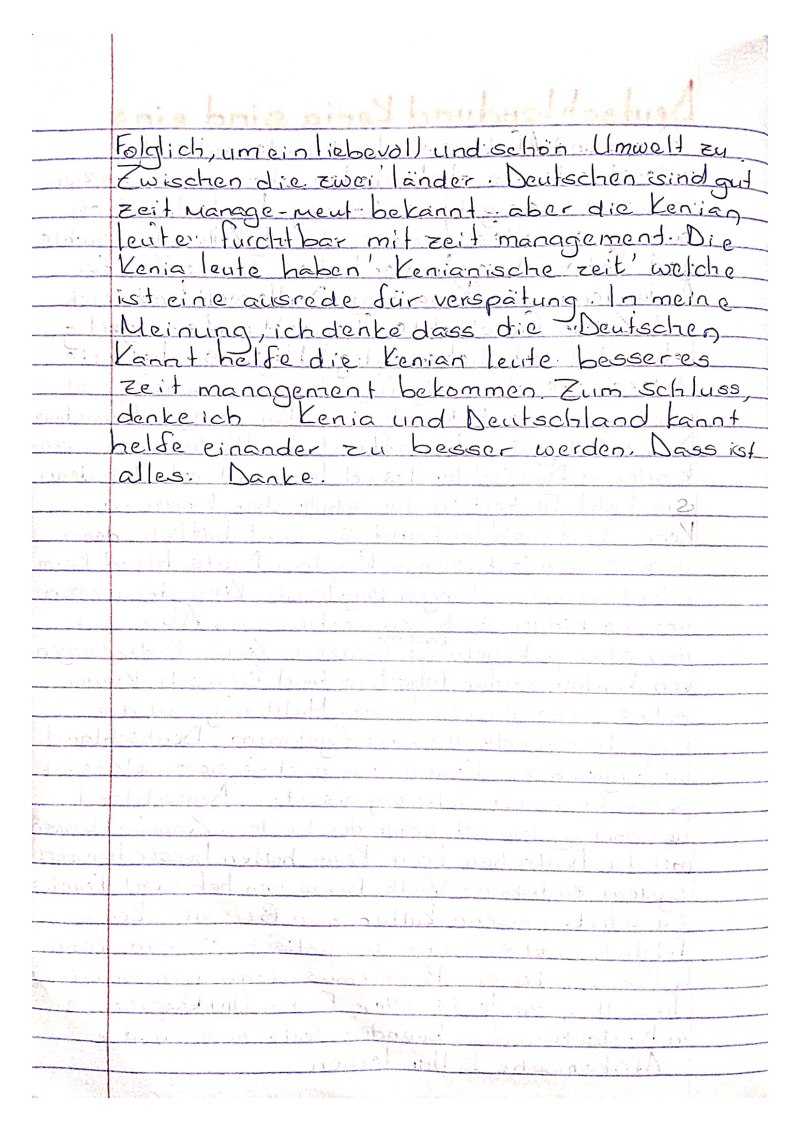 Folglich, um ein liebevoll und schön Umwelt zu
Zwischen die zwei länder. Deutschen sind gut
zeit manage-ment bekannt. aber die Kenian
leute furchtbar mit zeit management. Die
Kenia leute haben 'Kenianische zeit' welche
ist eine ausrede für verspätung. In meine
Meinung, ich denke dass die Deutschen
kannt helfe die Kenian leute besseres
zeit management bekommen. Zum schluss,
denke ich Kenia und Deutschland kannt
helfe einander zu besser werden. Dass ist
alles. Danke.